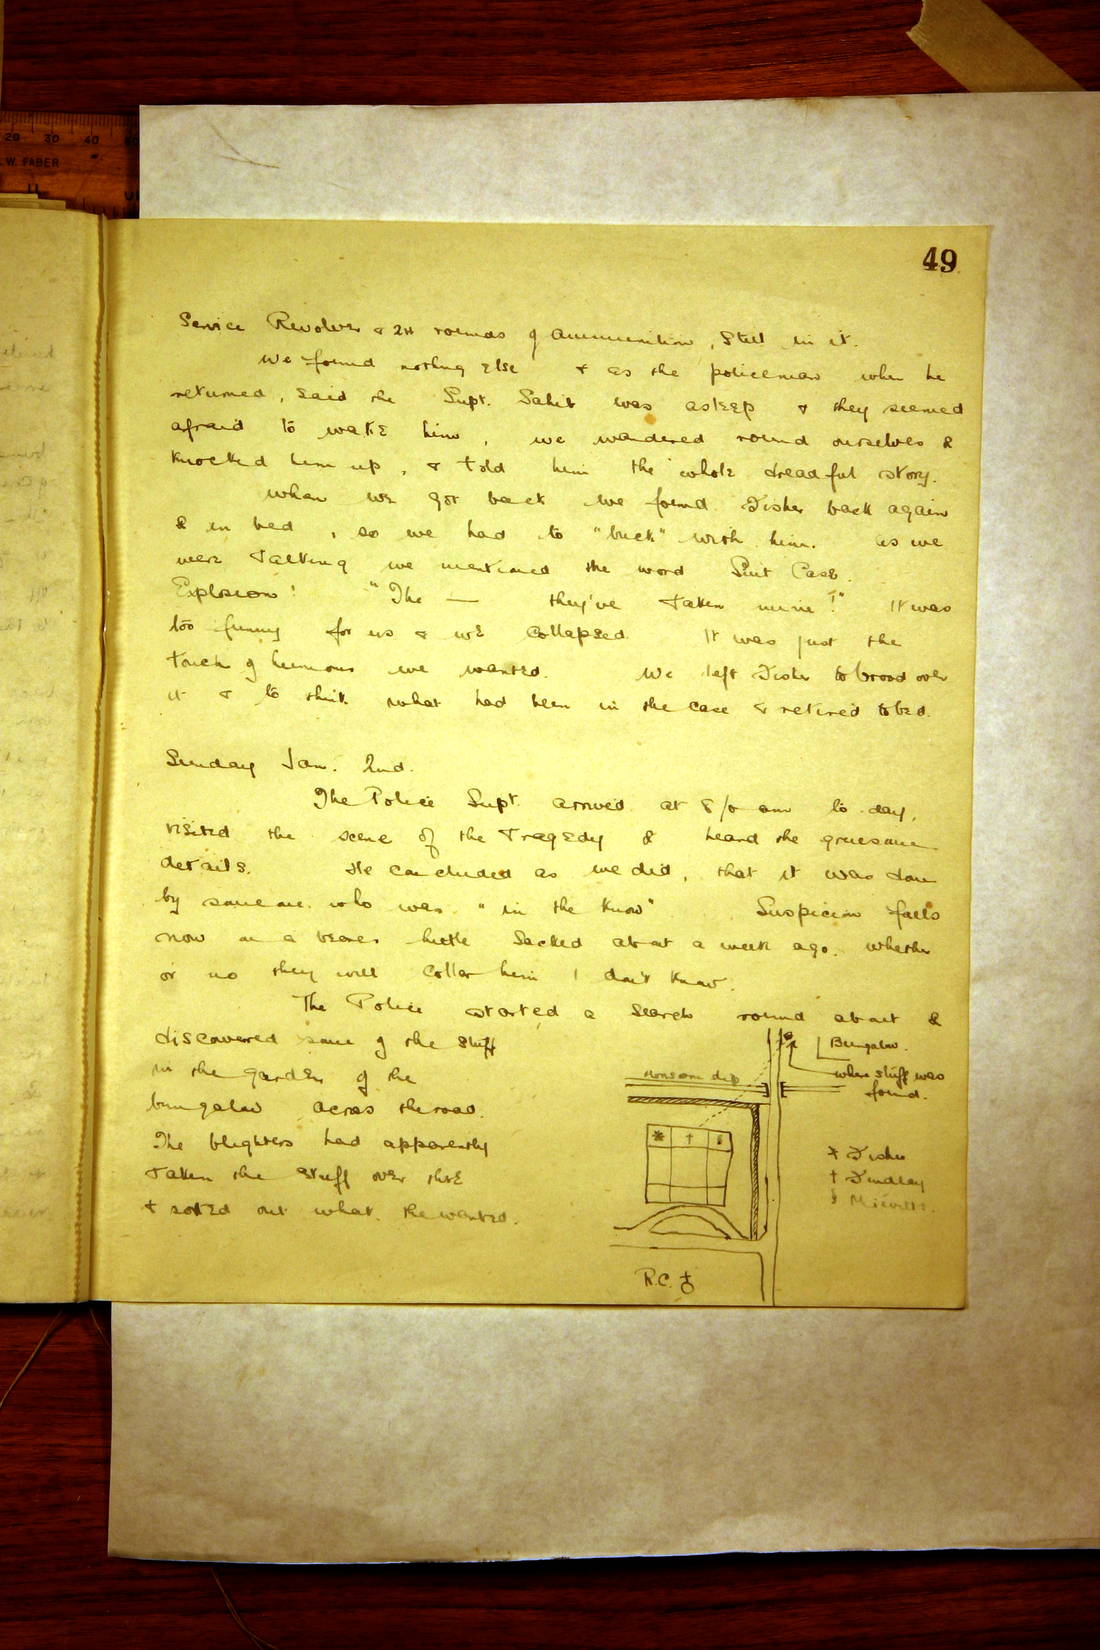 20 30 40
W. FABER
49
Service Revolver & 24 rounds of ammunition, still in it.
We found nothing else & as the policeman when he
returned, said the Supt. Sahib was asleep & they seemed
afraid to wake him, we wandered round ourselves &
knocked him up, & told him the whole dreadful story.
When we got back we found Fisher back again
& in bed, so we had to "buck" with him. As we
were talking we mentioned the word Suit Case.
Explosion! "The — they've taken mine!" It was
too funny for us & we collapsed. It was just the
touch of humour we wanted. We left Fisher to brood over
it & to think what had been in the case & retired to bed.
Sunday Jan. 2nd.
The Police Supt. arrived at 8/0 am to day,
visited the scene of the tragedy & heard the gruesome
details. He concluded as we did, that it was done
by someone who was "in the know" Suspicion falls
now on a bearer sacked about a week ago. Whether
or no they will collar him I don't know.
The Police started a search round about &
discovered some of the stuff
in the garden of the
bungalow across the road.
The blighters had apparently
taken the stuff over there
& sorted out what the wanted.
Bungalow.
where stuff was
found.
* Fisher
† Findlay
R.C.